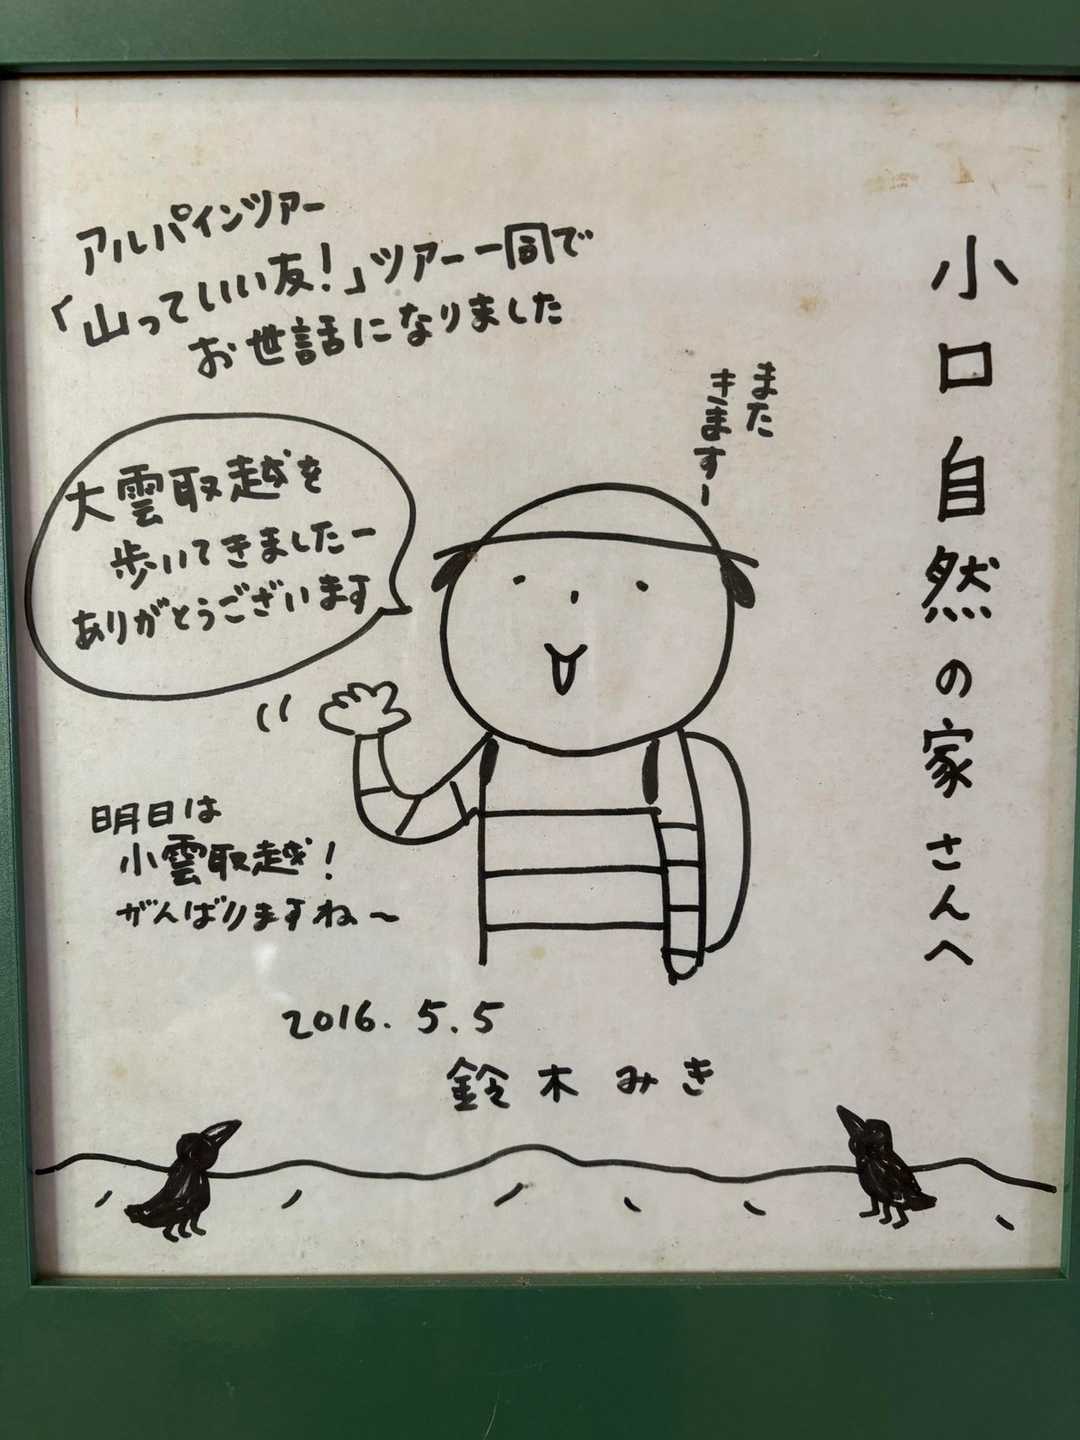 小口自然の家さんへ
アルパインツアー
「山っていい友!」ツアー一同で
お世話になりました
また
きますー
大雲取越を
歩いてきましたー
ありがとうございます
明日は
小雲取越!
がんばりますね〜
2016.5.5
鈴木みき